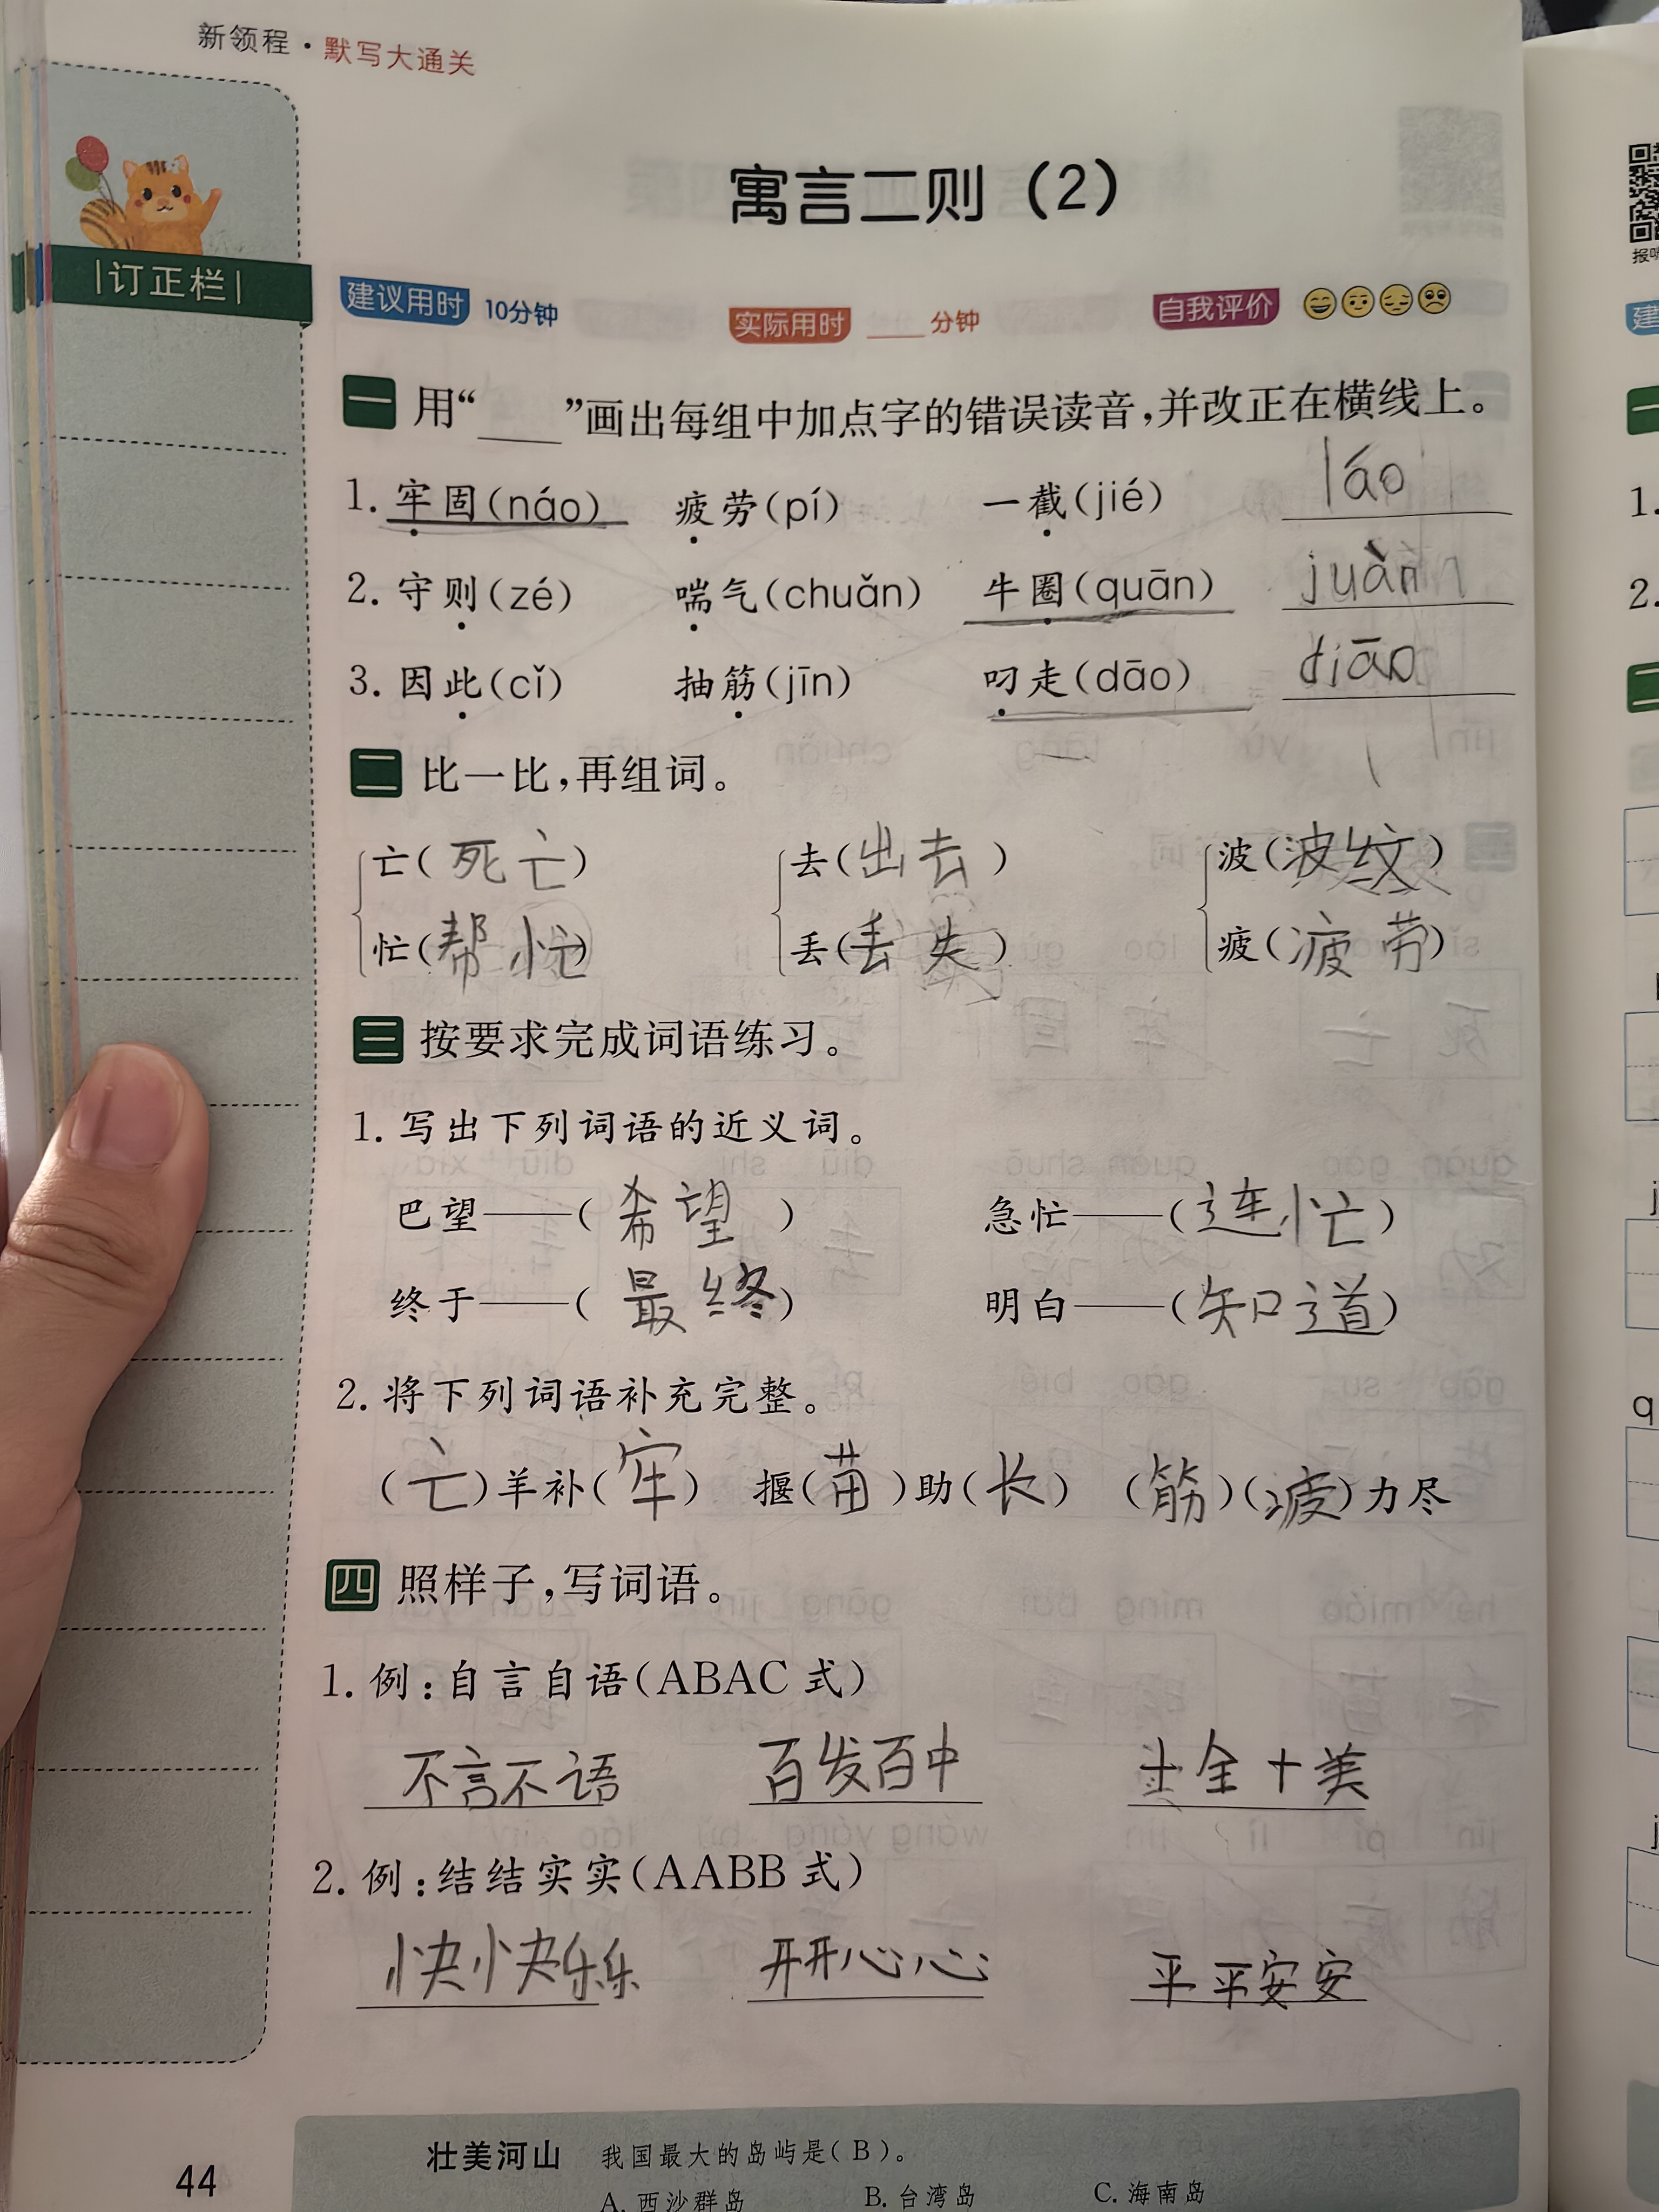 新领程·默写大通关
订正栏
寓言二则（2）
建议用时 10分钟 实际用时 ____ 分钟 自我评价
一 用“____”画出每组中加点字的错误读音，并改正在横线上。
1. 牢固(náo) 疲劳(pí) 一截(jié) láo
2. 守则(zé) 喘气(chuǎn) 牛圈(quān) juàn
3. 因此(cǐ) 抽筋(jīn) 叼走(dāo) diāo
二 比一比，再组词。
亡(死亡) 去(出去) 波(波纹)
忙(帮忙) 丢(丢失) 疲(疲劳)
三 按要求完成词语练习。
1. 写出下列词语的近义词。
巴望——(希望) 急忙——(连忙)
终于——(最终) 明白——(知道)
2. 将下列词语补充完整。
(亡)羊补(牢) 揠(苗)助(长) (筋)(疲)力尽
四 照样子，写词语。
1. 例：自言自语(ABAC式)
不言不语 百发百中 十全十美
2. 例：结结实实(AABB式)
快快乐乐 开开心心 平平安安
壮美河山 我国最大的岛屿是( B )。
A. 西沙群岛 B. 台湾岛 C. 海南岛
44